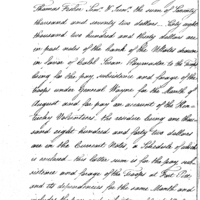 Thomas Fisher, Qur. M Genl. the sum of Seventy
thousand and seventy two dollars. Sixty eight
thousand two hundred and thirty dollars are
in post notes of the bank of the U States drawn
in favor of Caleb Swan Paymaster to the troops
being for the pay, subsistence and forage of the
troops under General Wayne for the Month of
August and for pay on account of the Ken-
tucky Volunteers. the residue being one thou-
sand eight hundred and forty two dollars
are in the Current Notes, a Schedule of which
is enclosed. this latter sum is for the pay, sub-
sistence and forage of the troops at Fort
and its dependencies for the same Month and